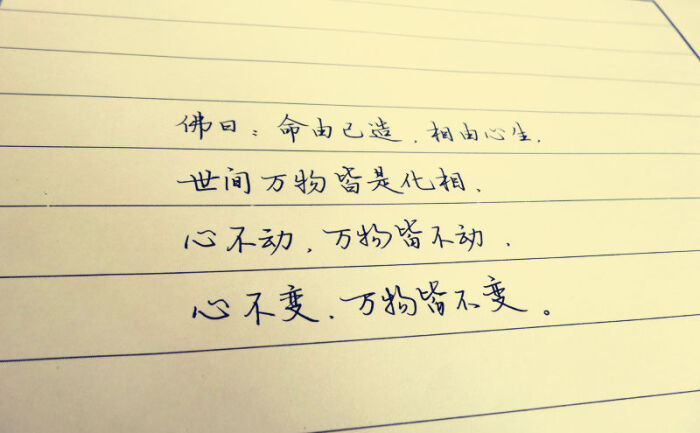 佛曰：命由己造，相由心生，
世间万物皆是化相，
心不动，万物皆不动，
心不变，万物皆不变。